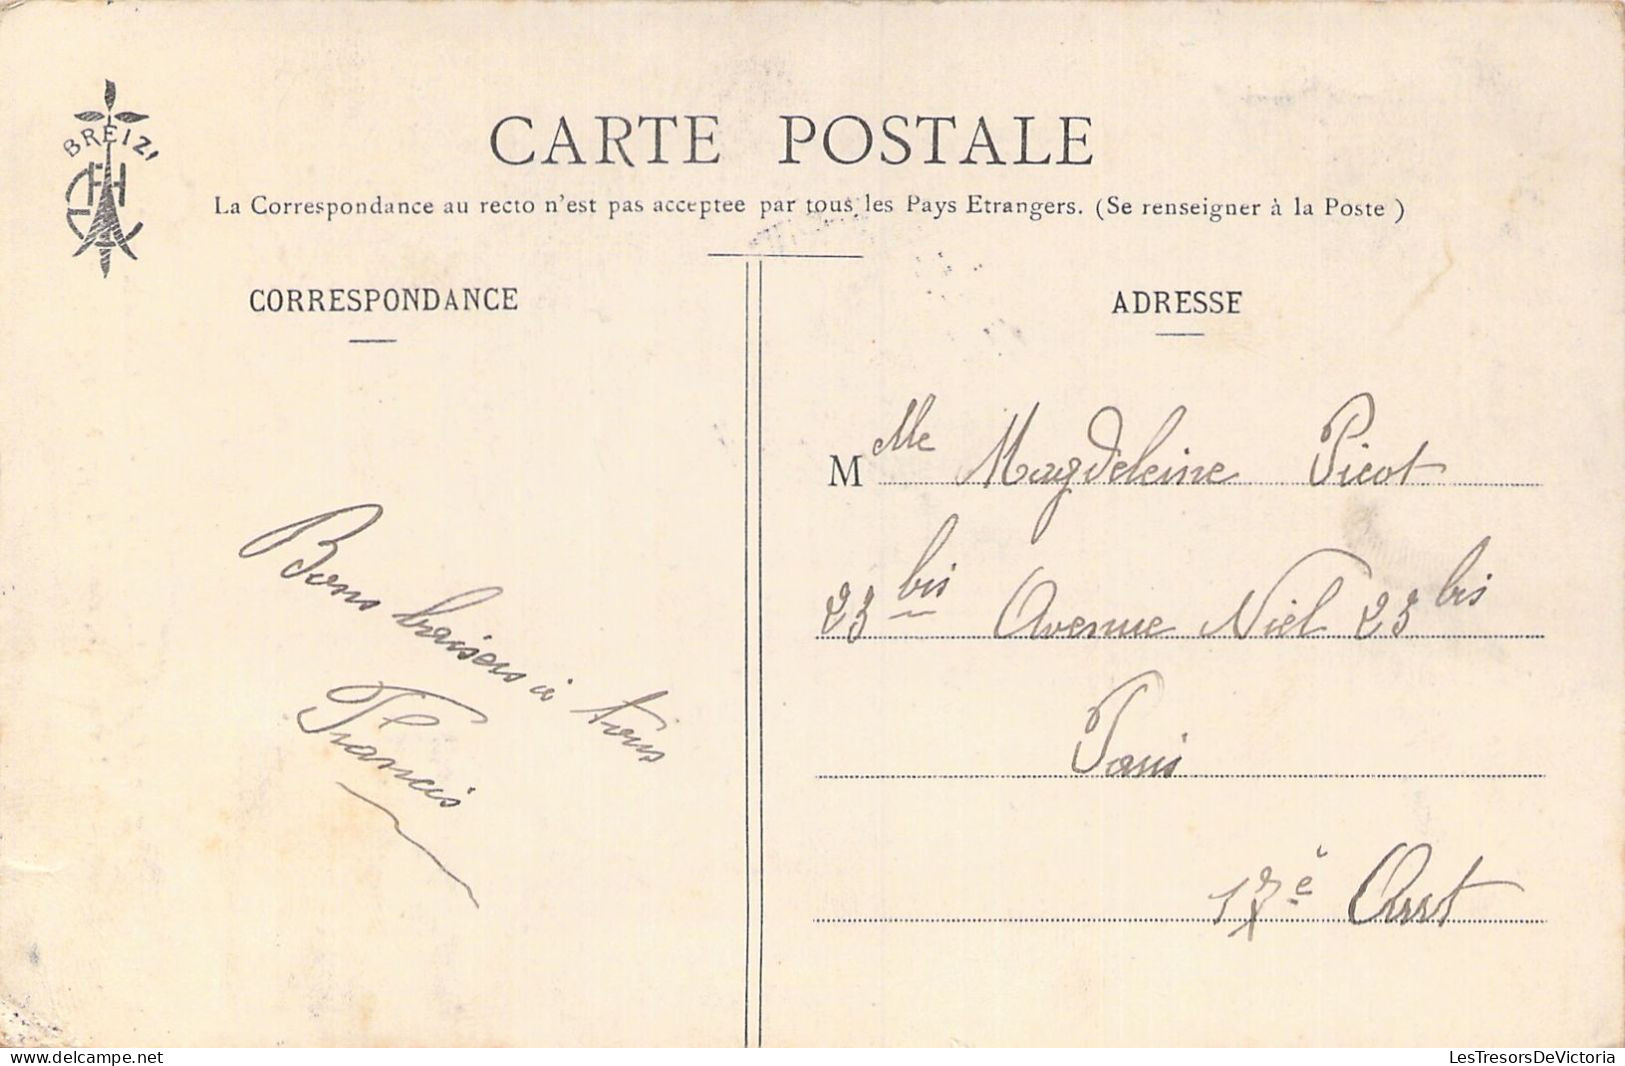 BREIZ
CARTE POSTALE
La Correspondance au recto n'est pas acceptee par tous les Pays Etrangers. (Se renseigner à la Poste )
CORRESPONDANCE
ADRESSE
Mlle Magdeleine Picot
23 bis Avenue Niel 23 bis
Paris
17è Arrt
Bons baisers à tous
Francis
www.delcampe.net
LesTresorsDeVictoria